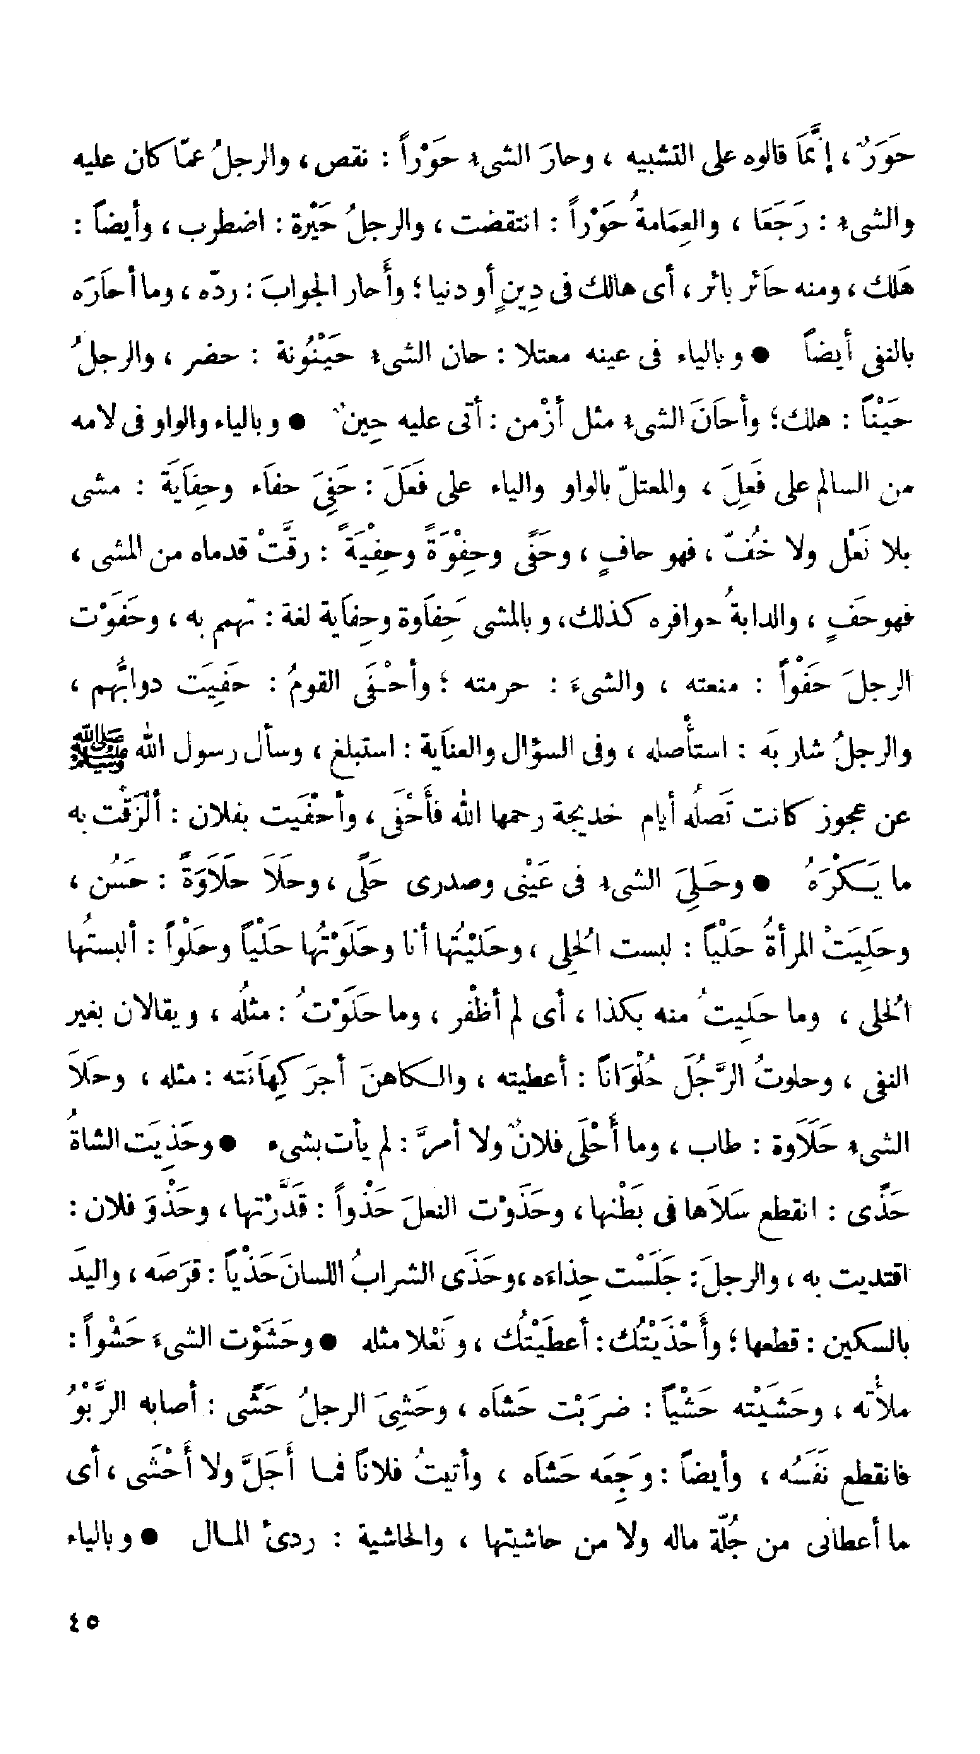 حَوَرٌ ، إنَّمَا قالوه على التشبيه ، وحارَ الشىء حَوْراً : نقص ، والرجلُ عمّا كان عليه
والشىء : رَجَعَا ، والعِمَامةُ حَوْراً : انتقضت ، والرجلُ حَيْرة : اضطرب ، وأيضاً :
هَلك ، ومنه حَائر بائر ، أى هالك فى دِينٍ أو دنيا ؛ وأَحار الجوابَ : ردّه ، وما أحارَه
بالنفى أيضاً ● وبالياء فى عينه معتلا : حان الشىء حَيْنُونة : حضر ، والرجلُ
حَيْناً : هلك ؛ وأحَانَ الشىء مثل أزْمن : أتى عليه حِينٌ ● وبالياء والواو فى لامه
من السالم على فَعِلَ ، والمعتلّ بالواو والياء على فَعَلَ : حَفِىَ حفاَء وحِفاَيَة : مشى
بلا نَعْل ولا خُفّ ، فهو حافٍ ، وحَفًى وحِفْوَةً وحِفْيَةً : رقَّتْ قدماه من المشى ،
فهو حَفٍ ، والدابةُ حوافره كذلك ، وبالمشى حِفاَوة وحِفاَية لغة : تهمم به ، وحَفَوْت
الرجلَ حَفْواً : منعته ، والشىءَ : حرمته ؛ وأحْفَى القومُ : حفِيَت دوابُّهم ،
والرجلُ شاربَه : استأصله ، وفى السؤال والعنَاية : استبلغ ، وسأل رسول الله ﷺ
عن عجوز كانت تَصلُه أيام خديجة رحمها الله فأَحْفَى ، وأحْفَيت بفلان : ألْزَقْت به
ما يَكْرَهُ ● وحَلِىَ الشىء فى عَيْنى وصدرى حَلًى ، وحلَا حَلَاوَةً : حَسُن ،
وحَلِيَتْ المرأةُ حَلْياً : لبست الحُلِى ، وحَليْتُها أنا وحَلَوْتُها حَلْياً وحَلْواً : ألبستُها
الحُلى ، وما حَلِيتُ منه بكذا ، أى لم أظْفر ، وما حَلَوْتُ : مثلُه ، ويقالان بغير
النفى ، وحلوتُ الرَّجُلَ حُلْوَاناً : أعطيته ، والكاهنَ أجرَ كِهَانَته : مثله ، وحَلَا
الشىء حَلَاوة : طاب ، وما أَحْلَى فلانٌ ولا أمرَّ : لم يأت بشىء ● وحَذِيَت الشاةُ
حَذًى : انقطع سَلَاها فى بَطْنها ، وحَذَوْت النعلَ حَذْواً : قدَّرْتها ، وحَذْوَ فلان :
اقتديت به ، والرجلَ : جَلَسْت حِذاءَه ، وحَذَى الشرابُ اللسانَ حَذْياً : قرَصَه ، واليدَ
بالسكين : قطعها ؛ وأَحْذَيْتُك : أعطَيْتُك ، ونَعْلا مثله ● وحَشَوْت الشىءَ حَشْواً :
ملأته ، وحَشَيْته حَشْياً : ضرَبْت حَشاَه ، وحَشِىَ الرجلُ حَشًى : أصابه الرَّبْوُ
فانقطع نَفَسُه ، وأيضاً : وَجِعَه حَشاَه ، وأتيتُ فلاناً فما أَجَلَّ ولا أَحْشَى ، أى
ما أعطانى من جُلّة ماله ولا من حاشيتها ، والحاشية : ردىُ المال ● وبالياء
٤٥